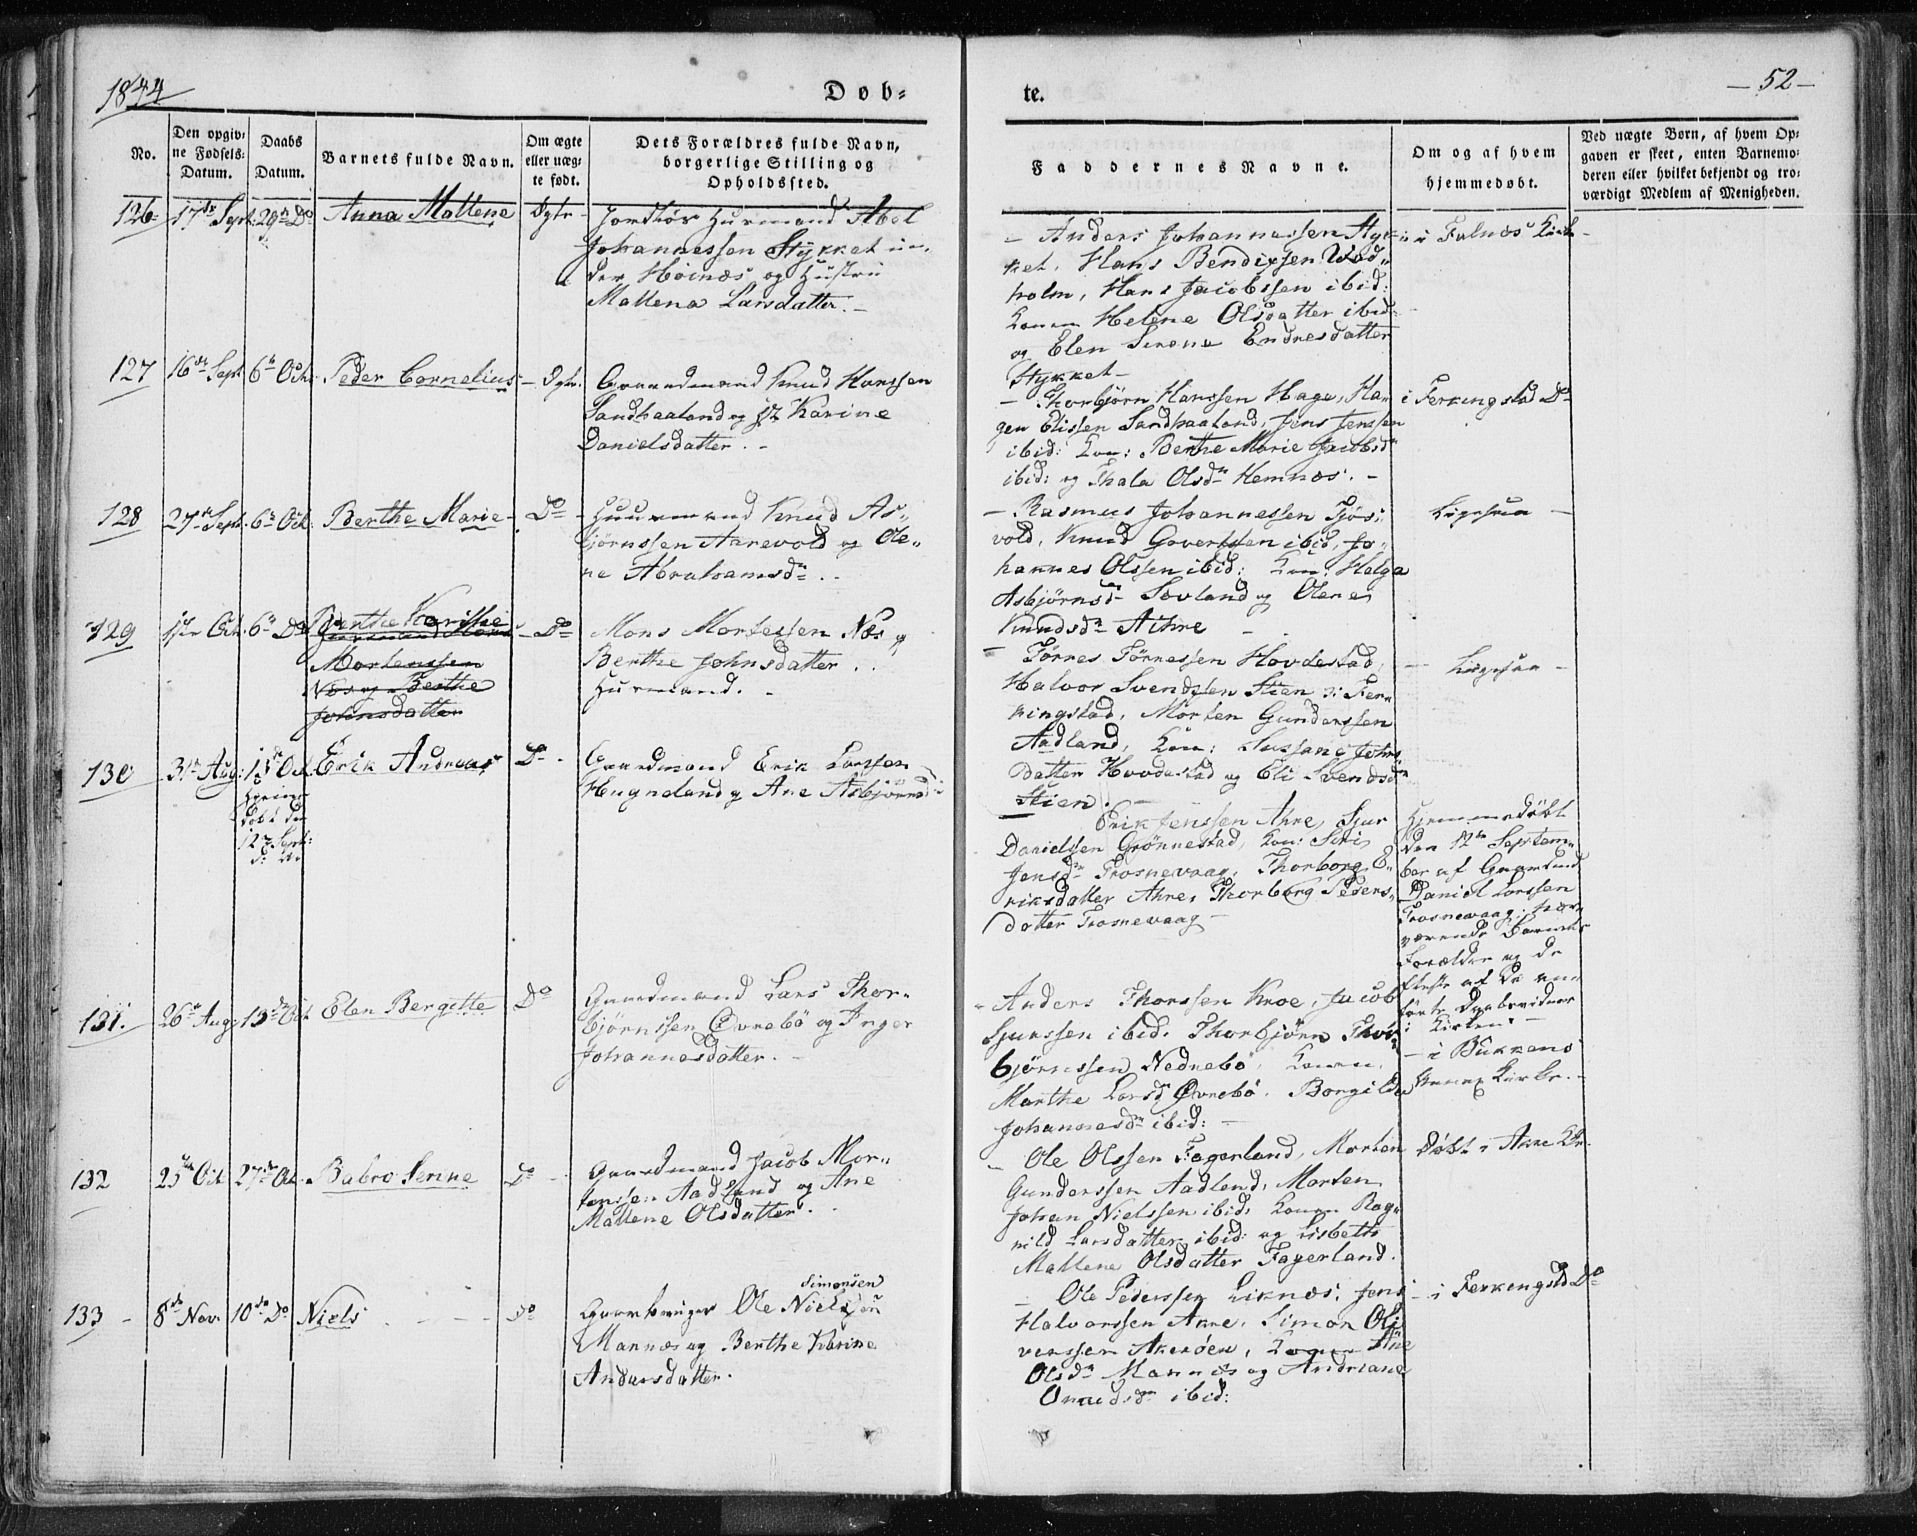 1844
Døb-
te.
- 52 -
No.
Den opgiv-
ne Fødsels-
Datum.
Daabs
Datum.
Barnets fulde Navn.
Om ægte
eller uæg-
te født.
Dets Forældres fulde Navn,
borgerlige Stilling og
Opholdssted.
Faddernes Navne.
Om og af hvem
hjemmedøbt.
Ved uægte Børn, af hvem Op-
gaven er skeet, enten Barnemo-
deren eller hvilket bekjendt og tro-
værdigt Medlem af Menigheden.
126
17de Sept:
29n Do
Anna Mallene
Ægte
Huusmand Abel
Johannessen Stykket un-
der Høinæs og Hustru
Mallena Larsdatter. -
- Anders Johannessen Styk-
ket, Hans Bendixsen Ved-
holm, Hans Jacobssen ibid:
Konen Helene Olsdatter ibid:
og Elen Serene Endresdatter
Stykket -
i Falnæs Kirke
127
16de Sept
6n Octr
Peder Cornelius
- Ægte.
Gaardmand Knud Hanssen
Sandhaaland og H. Karine
Danielsdatter. -
- Thorbjørn Hanssen Hage, Ha-
gen Elissen Sandhaaland, Jens Jenssen
ibid: Kon: Berthe Marie Jacobsdr
ibid: og Thala Olsdr Hemnæs. -
i Ferkingstad Do
128
27n Sept.
6n Oct.
Berthe Marie
Do
Huusmand Knud As-
bjørnssen Aarevold og Ole-
ne Abrahamsdr. .
- Rasmus Johannessen Tjøs-
vold, Knud Govertsen ibid, Jo-
hannes Olssen ibid: Kon: Helga
Asbjørnsdr Sevland og Olene
Knudsdr Aahre
Ligesaa -
129
1ste Oct.
6n Do
Berthe Karine
Mortenssen
Næs og Berthe
Johnsdatter
- Do
Mons Mortessen Næs og
Berthe Johnsdatter . .
Huusmand. -
- Tørres Tørressen Hovdestad,
Halvor Svendssen Stien i Fer-
kingstad, Morten Gunderssen
Aadland, Kon: Sussane Johns-
datter Hovdestad og Eli Svendsdr
Stien. -
- Ligesaa -
130
31n Aug:
13de Oct.
Hjemme-
døbt den
12te Sept:
Erik Andreas
Do -
Gaardmand Erik Larssen
Hugneland og Ane Asbjørnsdr
Erik Jenssen Ahre, Sjur
Danielsen Grønnestad, Kon: Siri
Jensdr Trosnevaag, Thorborg E-
riksdatter Ahre, Thorborg Peders-
datter Trosnevaag -
Hjemmedøbt
den 12te Septem-
ber af Gaardmand
Daniel Larssen
Trosnevaag, nær-
værende Barnets
Forældre og de
fleste af de an-
førte Daabsvidner
i Kirken. -
131.
26n Aug:
13de Oct.
Elen Bergitte
Do
Gaardmand Lars Thor-
bjørnssen Øvrebø og Inger
Johannesdatter. -
- Anders Thorssen Kroe, Jacob
Sjurssen ibid. Thorbjørn Thor-
bjørnssen Nednebø, Konen
Marthe Larsdr Øvrebø, Borgilde
Johannesdr ibid: -
- i Bukkens
Annex Kirke. -
132
25de Oct.
27de Oct.
Babro Serine
Do -
Gaardmand Jacob Mor-
tenssen Aadland og Ane
Mallene Olsdatter. .
- Ole Olssen Fagerland, Morten
Gunderssen Aadland, Morten
Johan Nielssen ibid, Konen Rag-
nild Larsdatter ibid: og Lisbeth
Mallene Olsdatter Fagerland.
Døbt i Akre Kir.
133 -
8de Nov.
10de Do
Niels
Do
Simonsen
Gaardbruger Ole Nielssen
Mannes og Berthe Karine
Andersdatter.
- Ole Pederssen Liknæs, Jens
Halvorssen Akre, Simon Oli-
verssen Akerøen, Konen Ane
Olsdr Mannes og Andriane
Omundsdr ibid:
- i Ferkingstd Do